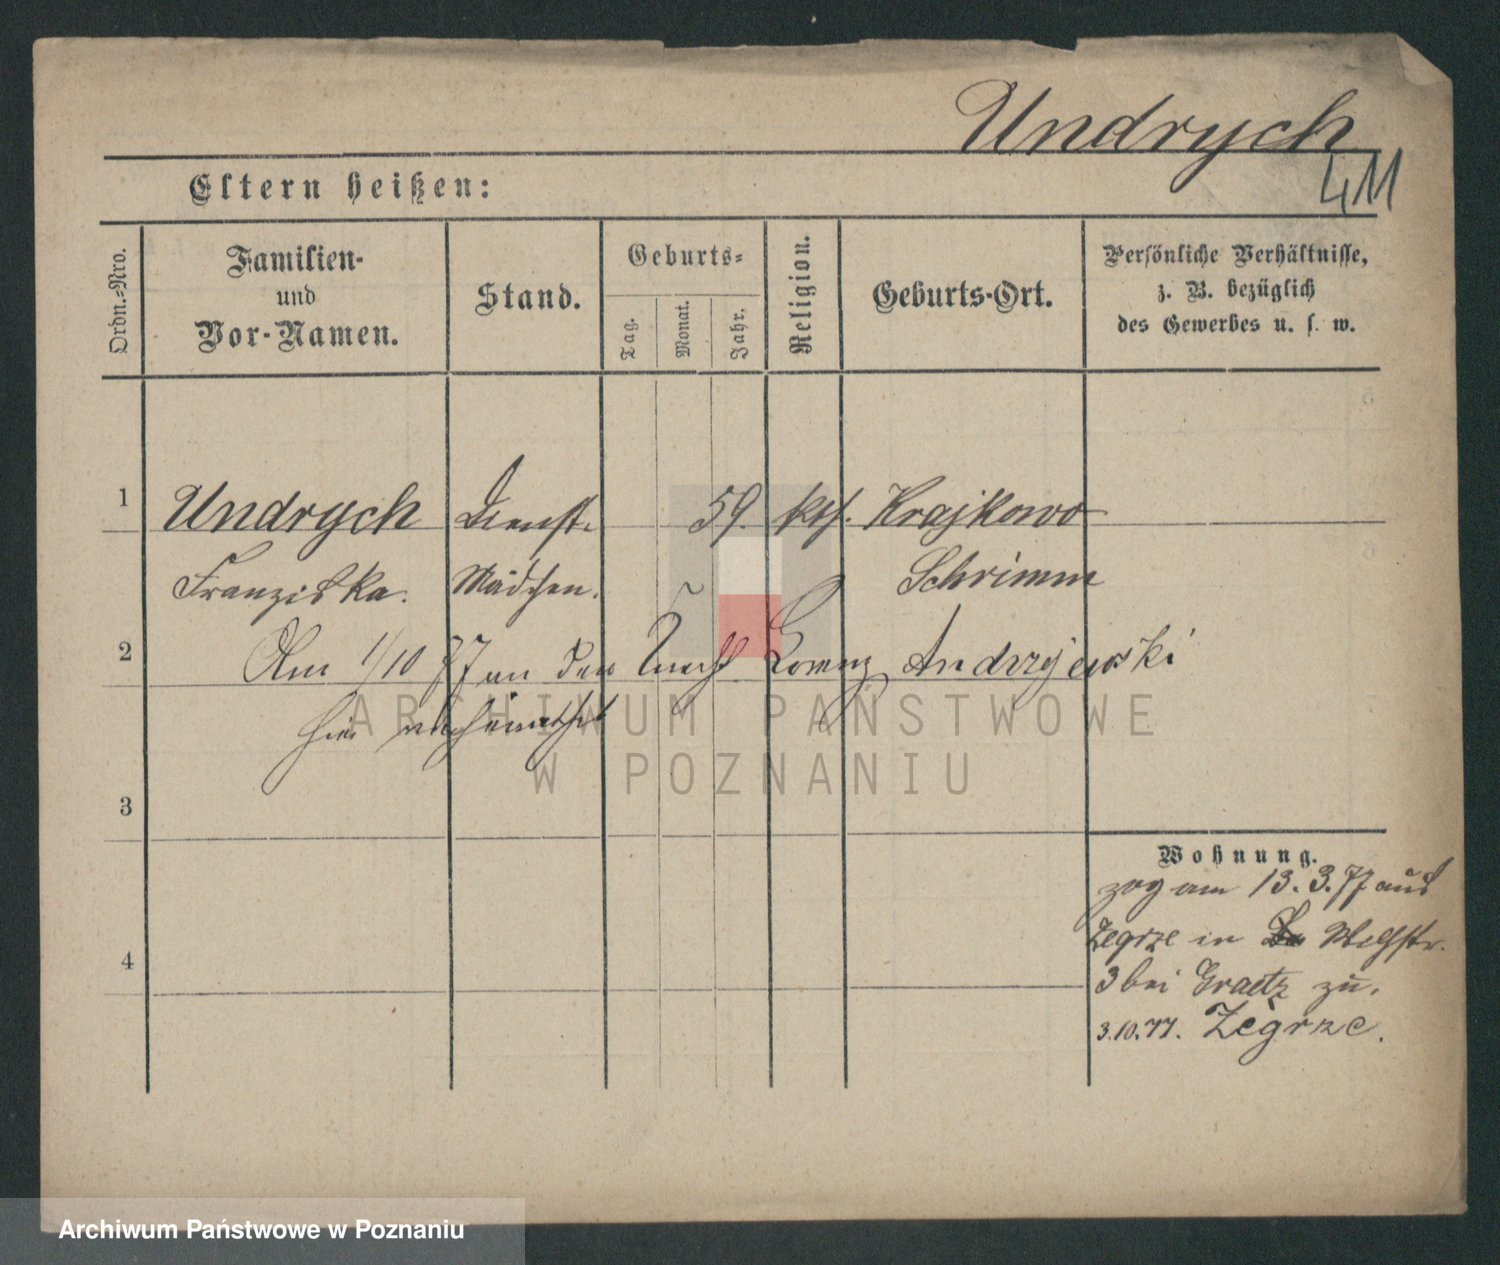 Undrych
411
Eltern heißen:
Ordn.=Nro.
Familien-
und
Vor-Namen.
Stand.
Geburts=
Tag.
Monat.
Jahr.
Religion.
Geburts-Ort.
Persönliche Verhältnisse,
z. B. bezüglich
des Gewerbes u. s. w.
1 Undrych Dienst- 59. kth. Krajkowo
Franziska. Mädchen. Schrimm
2 Am 1/10 77 an den Knecht Lorenz Andrzejewski
hier verheirathet
3
Wohnung.
zog am 13.3.77 aus
Zegrze in St.
3 bei Graetz zu.
4
3.10.77. Zegrze.
ARCHIWUM PAŃSTWOWE
W POZNANIU
Archiwum Państwowe w Poznaniu